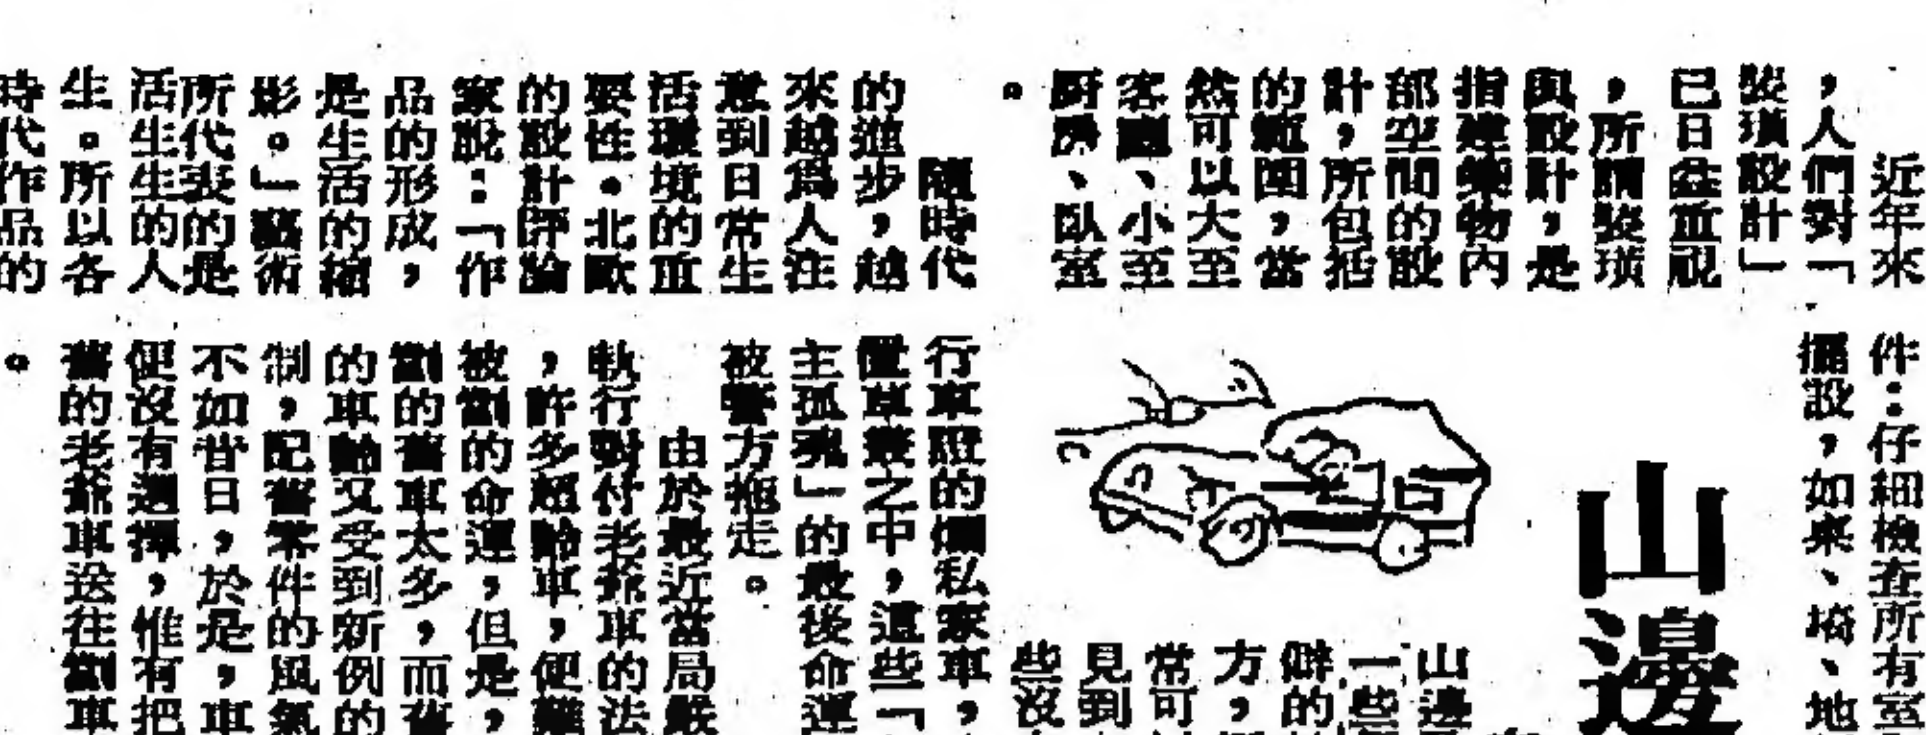 近年來
，人們對「
裝璜設計」
已日益重視
，所謂裝璜
與設計，是
指建築物內
部空間的設
計，所包括
的範圍，當
然可以大至
客廳、小至
厨房、臥室
。
隨時代
的進步，越
來越爲人注
意到日常生
活環境的重
要性。北歐
的設計評論
家說：「作
品的形成，
是生活的縮
影。」藝術
所代表的是
活生生的人
生。所以各
時代作品的
件：仔細檢查所有室
擺設，如桌、埼、地
山邊
山邊
一些
僻的
方，
常可
見到
些沒
行車證的爛私家車，
置草叢之中，這些「
主孤魂」的最後命運
被警方拖走。
由於最近當局嚴
執行對付老爺車的法
，許多超齡車，便難
被劏的命運，但是，
劏的舊車太多，而舊
的車齡又受到新例的
制，配舊零件的風氣
不如昔日，於是，車
便沒有選擇，惟有把
舊的老爺車送往劏車
。